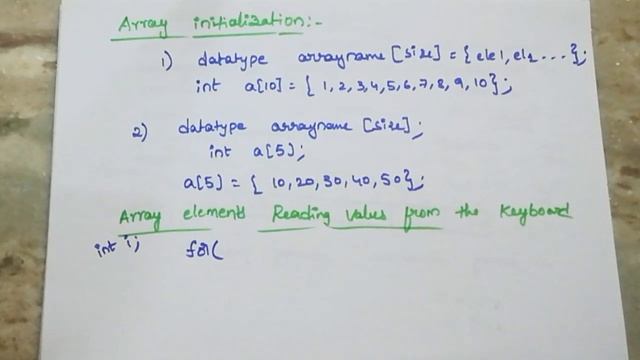 Array initialization:-
1) datatype arrayname [size] = { ele1, el2 ... };
int a[10] = { 1, 2, 3, 4, 5, 6, 7, 8, 9, 10};
2) datatype arrayname [size];
int a[5];
a[5] = { 10, 20, 30, 40, 50};
Array elements Reading values from the keyboard
int i; for(